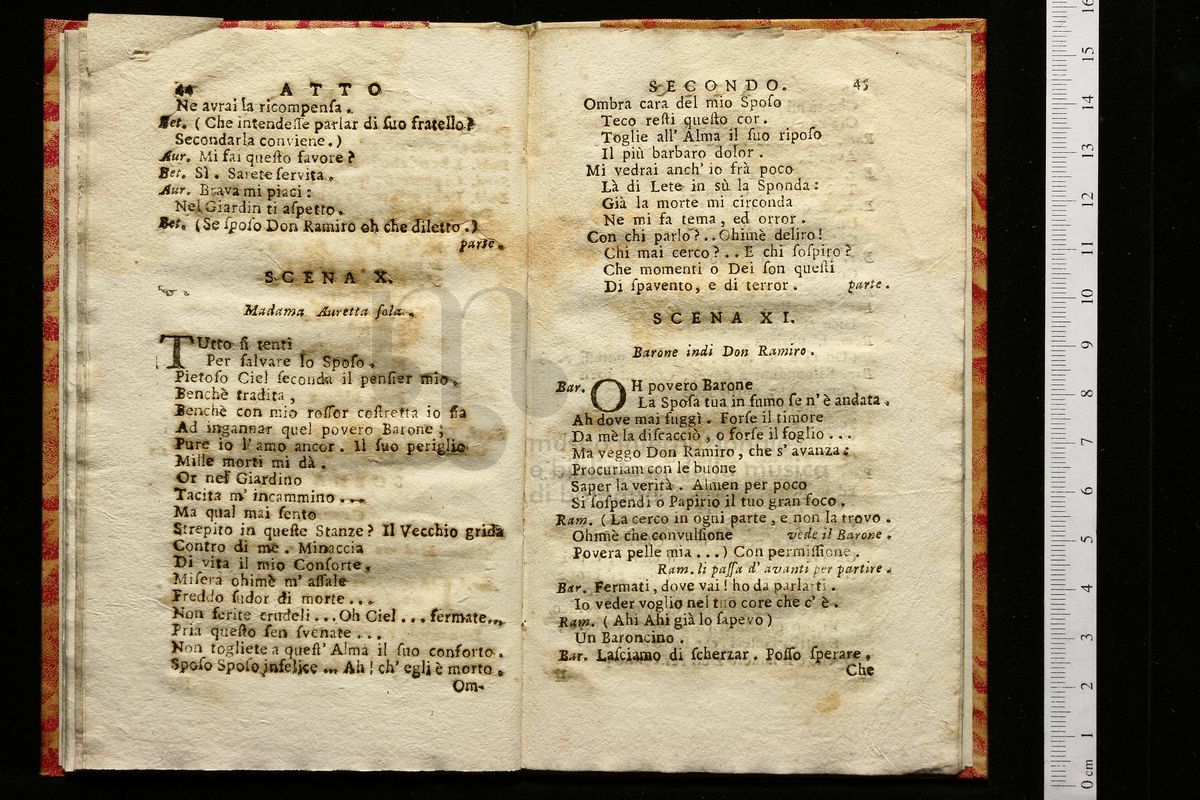 44 ATTO
Ne avrai la ricompenſa.
Bet. (Che intendeſſe parlar di ſuo fratello?
Secondarla conviene.)
Aur. Mi fai queſto favore?
Bet. Sì. Sarete ſervita.
Aur. Brava mi piaci:
Nel Giardin ti aſpetto.
Bet. (Se ſpoſo Don Ramiro oh che diletto.)
parte.
SCENA X.
Madama Auretta ſola.
TUtto ſi tenti
Per ſalvare lo Spoſo.
Pietoſo Ciel ſeconda il penſier mio.
Benchè tradita,
Benchè con mio roſſor coſtretta io ſia
Ad ingannar quel povero Barone;
Pure io l'amo ancor. Il ſuo periglio
Mille morti mi dà.
Or nel Giardino
Tacita m' incammino ...
Ma qual mai ſento
Strepito in queſte Stanze? Il Vecchio grida
Contro di me. Minaccia
Di vita il mio Conſorte.
Miſera ohimè m' aſſale
Freddo ſudor di morte...
Non ferite crudeli...Oh Ciel... fermate...
Pria queſto ſen ſvenate...
Non togliete a queſt' Alma il ſuo conforto.
Spoſo Spoſo infelice... Ah! ch' egli è morto.
Om-
SECONDO. 45
Ombra cara del mio Spoſo
Teco reſti queſto cor.
Toglie all' Alma il ſuo ripoſo
Il più barbaro dolor.
Mi vedrai anch' io frà poco
Là di Lete in sù la Sponda:
Già la morte mi circonda
Ne mi fa tema, ed orror.
Con chi parlo?..Ohimè deliro!
Chi mai cerco?.. E chi ſoſpiro?
Che momenti o Dei ſon queſti
Di ſpavento, e di terror. parte.
SCENA XI.
Barone indi Don Ramiro.
Bar. OH povero Barone
La Spoſa tua in fumo ſe n' è andata.
Ah dove mai fuggì. Forſe il timore
Da mè la diſcacciò, o forſe il foglio...
Ma veggo Don Ramiro, che s' avanza:
Procuriam con le buone
Saper la verità. Almen per poco
Si ſoſpendi o Papirio il tuo gran foco.
Ram. (La cerco in ogni parte, e non la trovo.
Ohimè che convulſione vede il Barone.
Povera pelle mia...) Con permiſſione.
Ram. li paſſa d' avanti per partire.
Bar. Fermati, dove vai! ho da parlarti.
Io veder voglio nel tuo core che c' è.
Ram. (Ahi Ahi già lo ſapevo)
Un Baroncino.
Bar. Laſciamo di ſcherzar. Poſſo ſperare.
Che